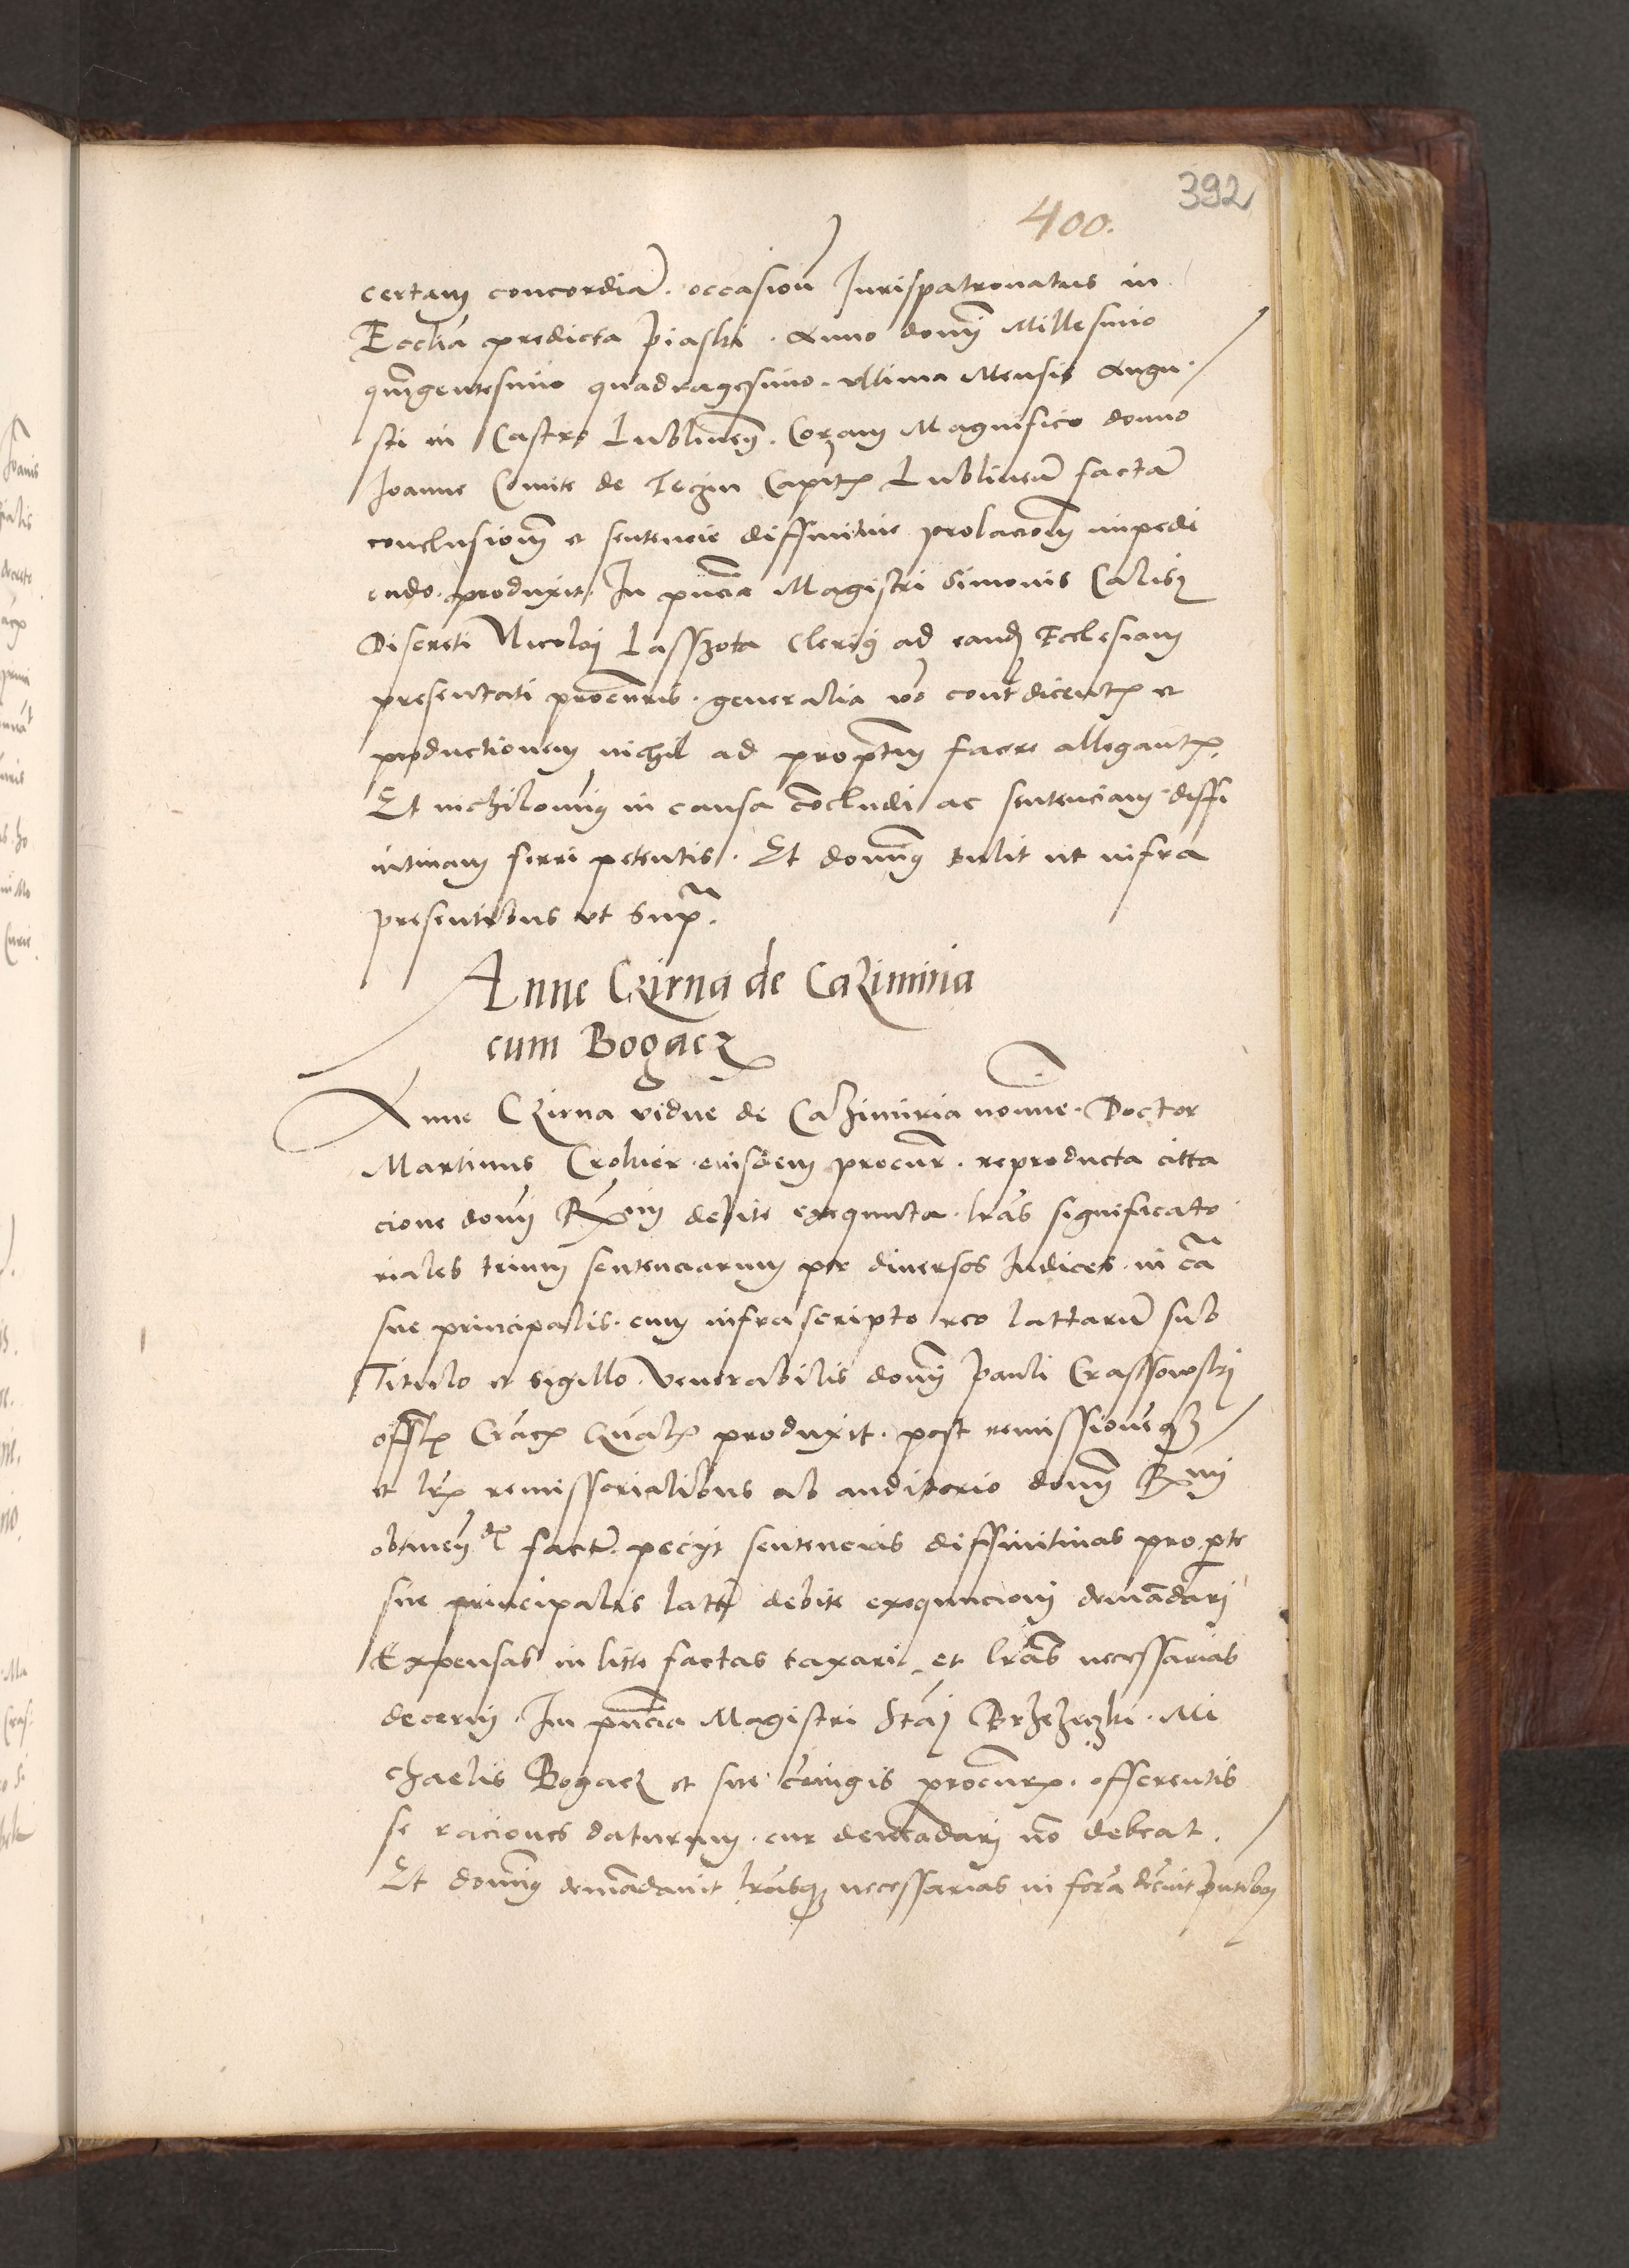 392
400.
certam concordiã. occasioñ Jurispatronatus in
Eccliã predicta Piaski. Anno domĩ Millesimo
quĩgentesimo quadragesimo. ultima Mensis Augu-
sti in Castro Lublineñ. Coram Magnifico domno
Joanne Comite de Teczin Capit Lublineñ factã
conclusionẽ et sentencie diffinitive prolacionẽ impedi
endo. produxit. In pñcia Magistri Simonis Calisz
Discreti Nicolai Lasszota Clerici ad eandẽ Ecclesiam
presentati procuñris. generalia vo contͣdicentis et
productionem nichil ad propositum facere allegantis.
Et nichilominus in causa cõcludi ac sentenciam diffi
nitivam ferri petentis. Et domĩus tulit ut infra
presentibus ut supra.
Anne Czirna de Cazimiria
cum Bogacz
Anne Czirna vidue de Cazimiria nomine. Doctor
Martinus Crokier eiusdem procur. reproducta citta
cione domĩ Rmi debite exequuta. lrãs significato
riales trium sentenciarum per diversos Judices. in cã
sue principalis. cum infrascripto reo lattarũ sub
Titulo et sigillo. Venerabilis domĩ Pauli Crassowskij
offlis Crac produxit. post remissionẽqz
et lris remissorialibus ab auditorio domĩ Rmi
factũ. peciit sentencias diffinitivas pro pte
sue principalis latas debite exequucioni demãdari
Expensas in litte factas taxari et lrãs necessarias
decerni. Im pñcia Magistri Stãi Brzezyczki. Mi
chaelis Bogacz et sue cõiugis procuris. offerentis
se raciones daturum. cur demãdari nõ debeat.
Et domĩus demãdavit lrãsqz necessarias in forã decrevit pñtibus